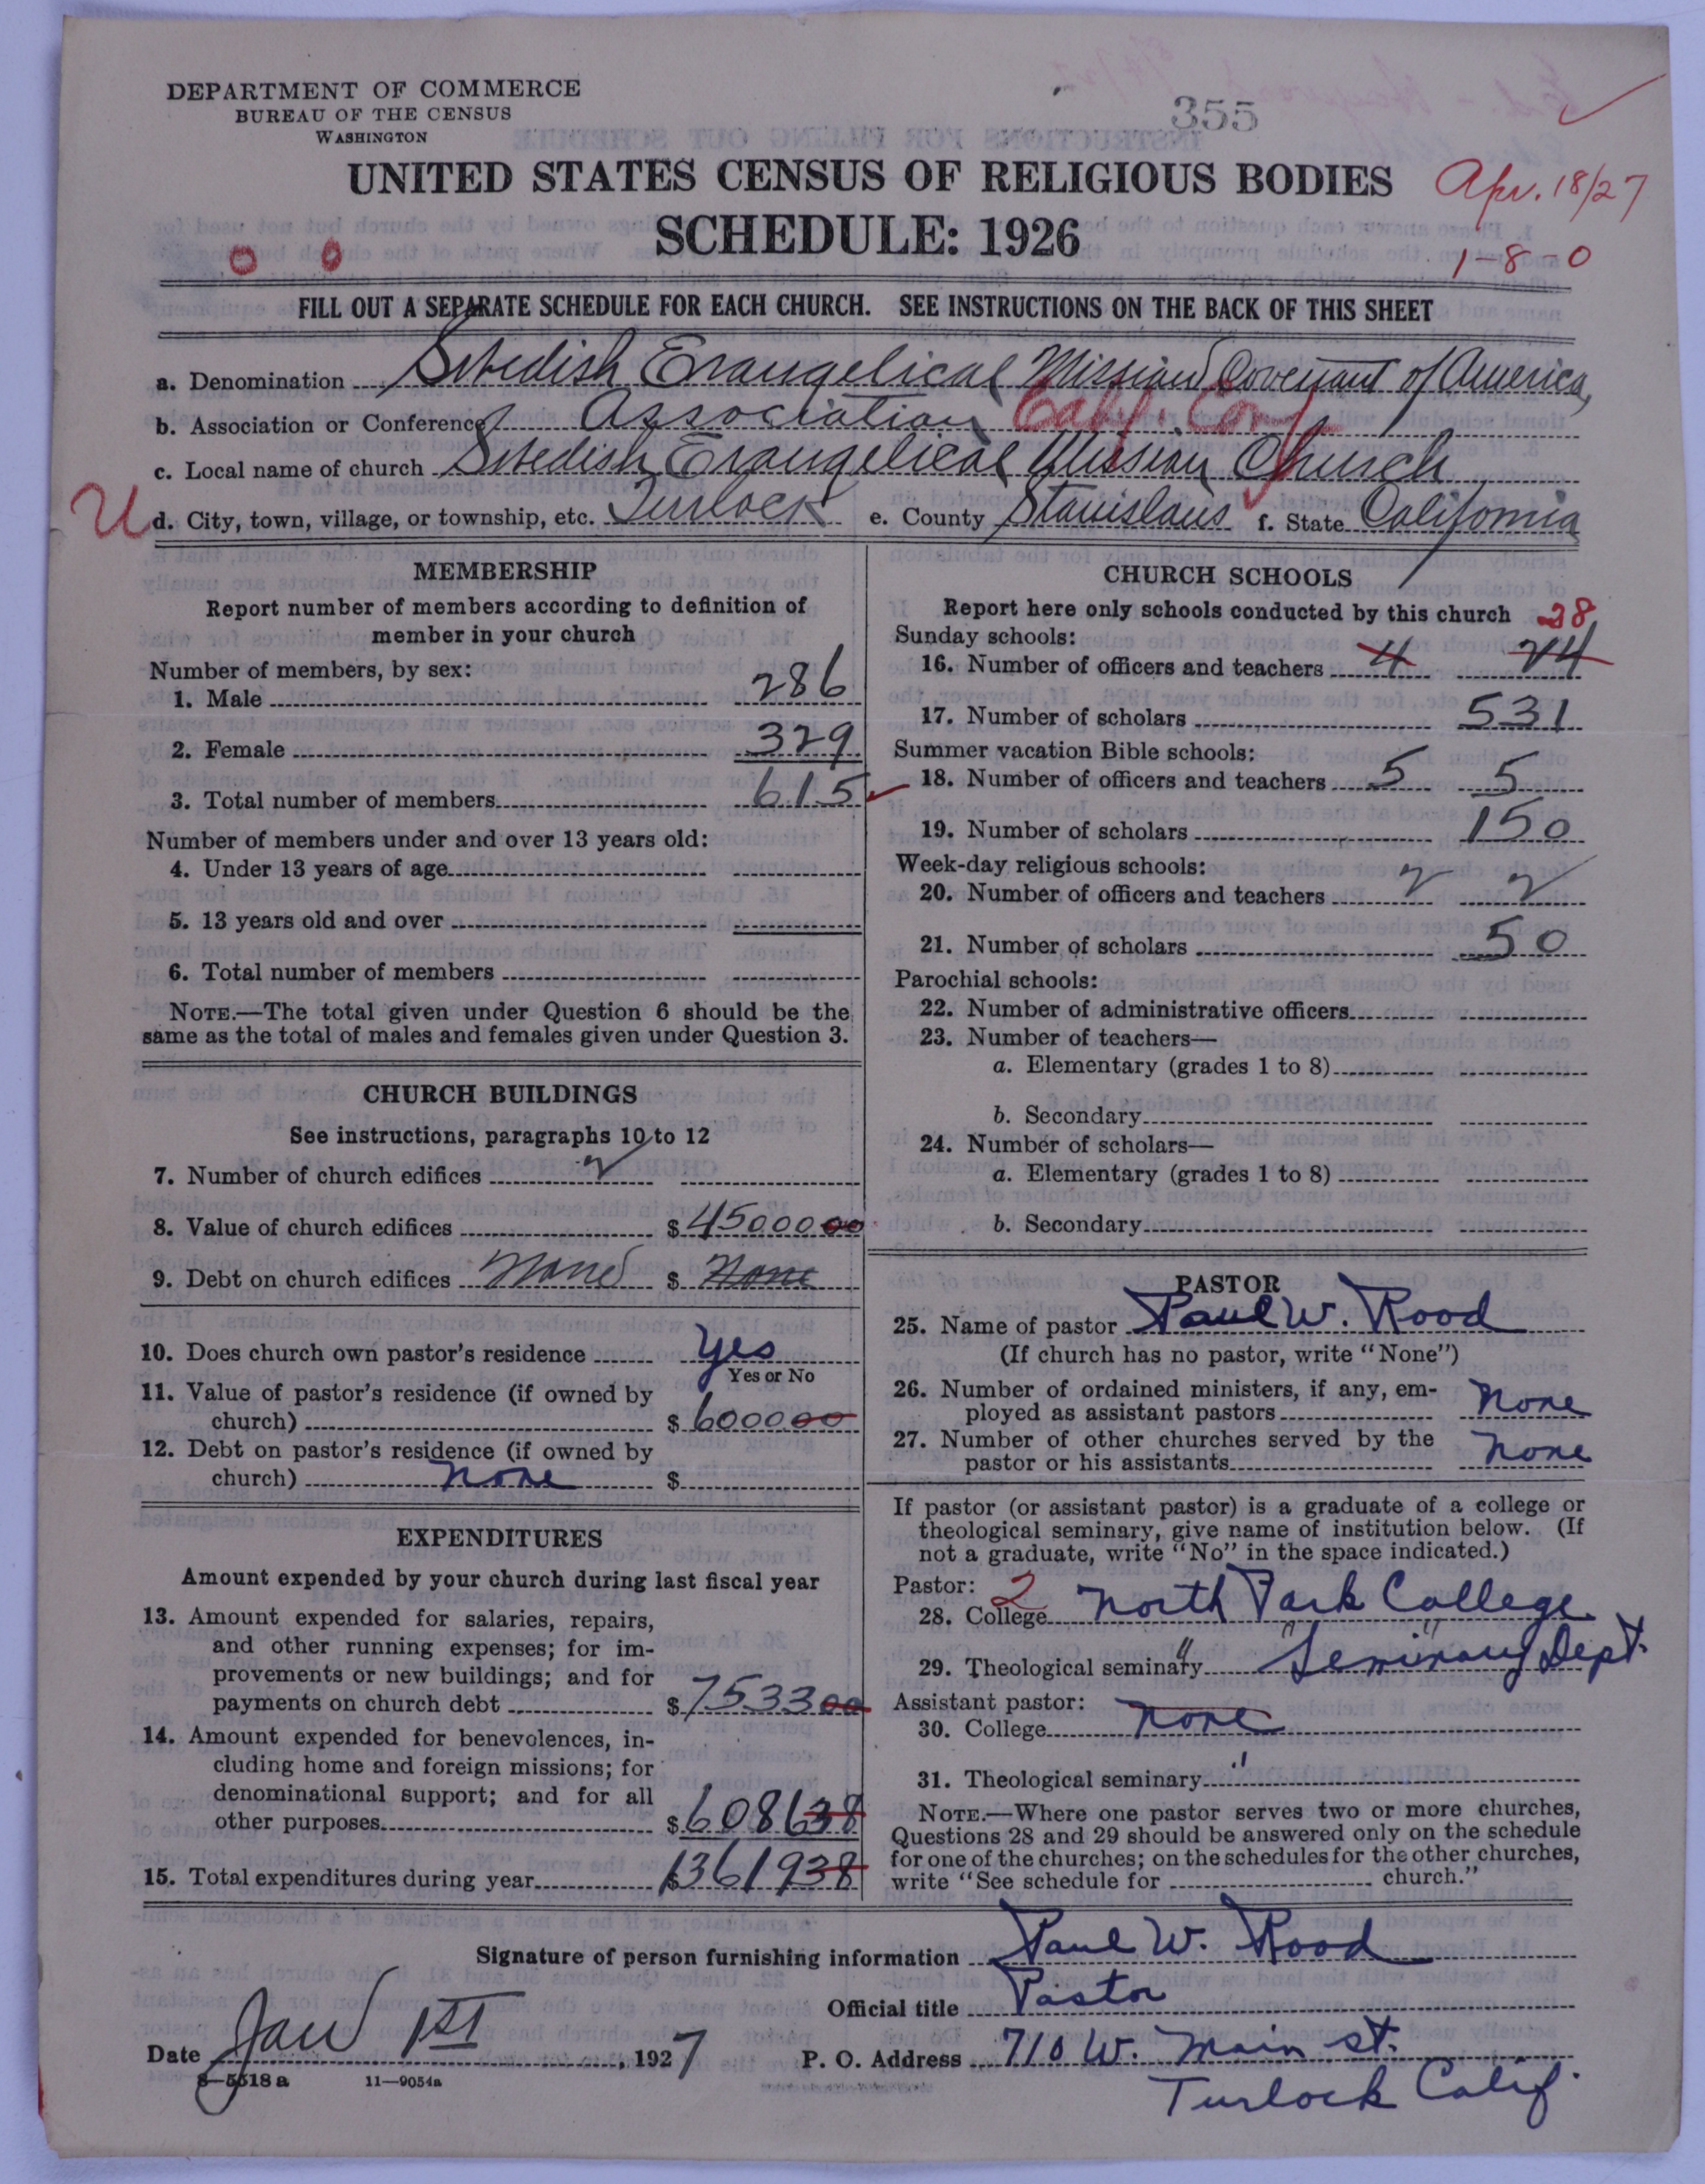 DEPARTMENT OF COMMERCE
BUREAU OF THE CENSUS
WASHINGTON
355
UNITED STATES CENSUS OF RELIGIOUS BODIES
Apr. 18/27
SCHEDULE: 1926
1-8-0
FILL OUT A SEPARATE SCHEDULE FOR EACH CHURCH. SEE INSTRUCTIONS ON THE BACK OF THIS SHEET
a. Denomination Swedish Evangelical Mission Covenant of America,
b. Association or Conference Association Calif. Conf.
c. Local name of church Swedish Evangelical Mission Church
U d. City, town, village, or township, etc. Turlock e. County Stanislaus f. State California
MEMBERSHIP
Report number of members according to definition of
member in your church
Number of members, by sex:
1. Male 286
2. Female 329
3. Total number of members 615
Number of members under and over 13 years old:
4. Under 13 years of age
5. 13 years old and over
6. Total number of members
NOTE.—The total given under Question 6 should be the
same as the total of males and females given under Question 3.
CHURCH BUILDINGS
See instructions, paragraphs 10 to 12
7. Number of church edifices 2
8. Value of church edifices $ 45000 00
9. Debt on church edifices None $ None
10. Does church own pastor's residence Yes
Yes or No
11. Value of pastor's residence (if owned by
church) $ 6000 00
12. Debt on pastor's residence (if owned by
church) none $
EXPENDITURES
Amount expended by your church during last fiscal year
13. Amount expended for salaries, repairs,
and other running expenses; for im-
provements or new buildings; and for
payments on church debt $ 7533 00
14. Amount expended for benevolences, in-
cluding home and foreign missions; for
denominational support; and for all
other purposes $ 6086 38
15. Total expenditures during year $ 13619 38
CHURCH SCHOOLS
Report here only schools conducted by this church 28
Sunday schools:
16. Number of officers and teachers 4 24
17. Number of scholars 531
Summer vacation Bible schools:
18. Number of officers and teachers 5 5
19. Number of scholars 150
Week-day religious schools:
20. Number of officers and teachers 2 2
21. Number of scholars 50
Parochial schools:
22. Number of administrative officers
23. Number of teachers—
a. Elementary (grades 1 to 8)
b. Secondary
24. Number of scholars—
a. Elementary (grades 1 to 8)
b. Secondary
PASTOR
25. Name of pastor Paul W. Rood
(If church has no pastor, write "None")
26. Number of ordained ministers, if any, em-
ployed as assistant pastors None
27. Number of other churches served by the
pastor or his assistants None
If pastor (or assistant pastor) is a graduate of a college or
theological seminary, give name of institution below. (If
not a graduate, write "No" in the space indicated.)
Pastor: 2
28. College North Park College
29. Theological seminary " " " Seminary Dept.
Assistant pastor:
30. College none
31. Theological seminary "
NOTE.—Where one pastor serves two or more churches,
Questions 28 and 29 should be answered only on the schedule
for one of the churches; on the schedules for the other churches,
write "See schedule for church."
Signature of person furnishing information Paul W. Rood
Official title Pastor
Date Jan 1st, 1927 P. O. Address 710 W. Main St.
8—5518 a 11—9054a
Turlock Calif.